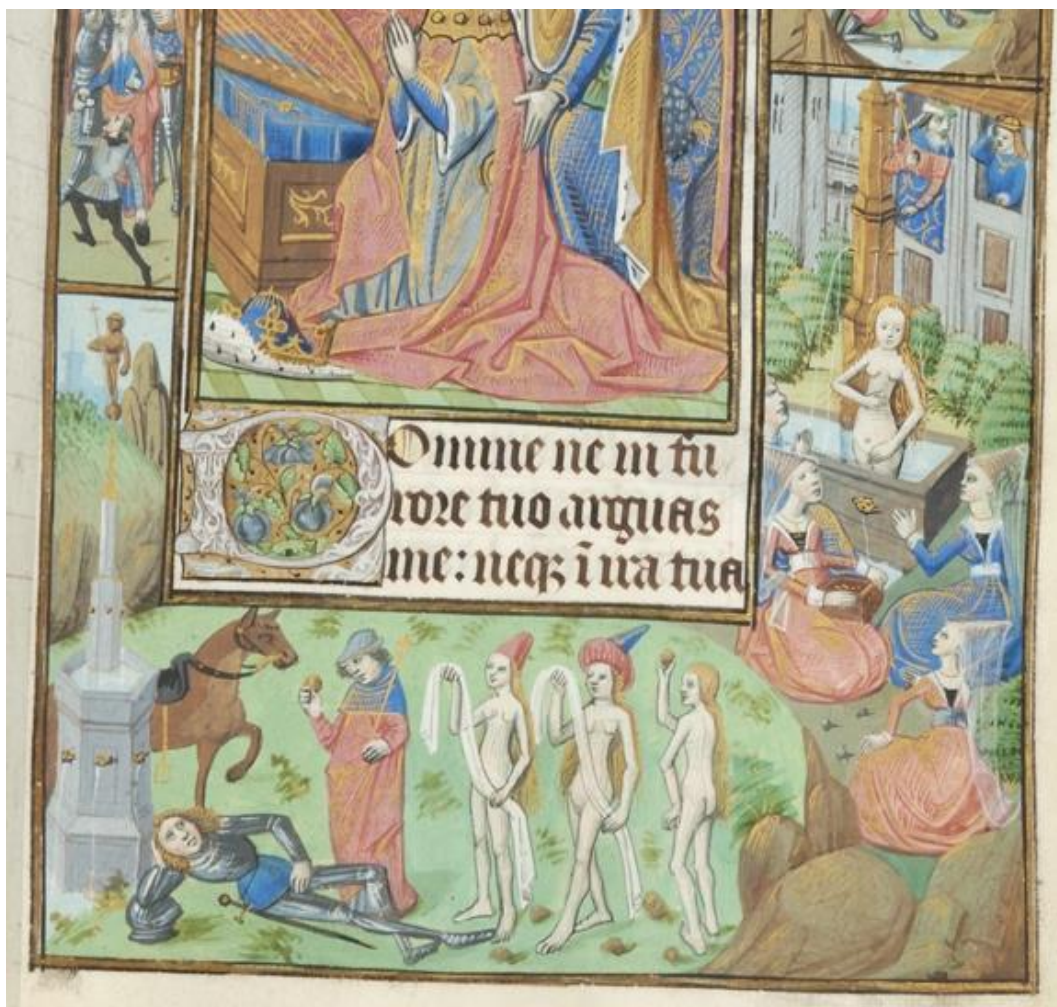 Domine ne in fu
rore tuo arguas
me: neq₃ ī ira tua